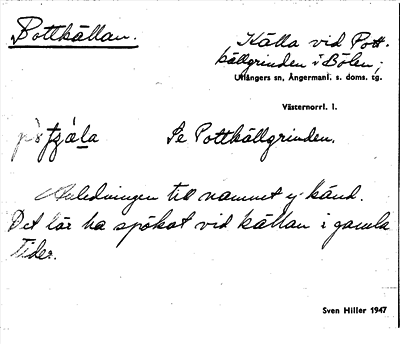 Pottkällan.
Källa vid Pott-
källgrinden i Bölen;
Ullångers sn, Ångermanl. s. doms. tg.
Västernorrl. l.
Se Pottkällgrinden.
Anledningen till namnet ej känd.
Det lär ha spökat vid källan i gamla
tider.
Sven Hiller 1947